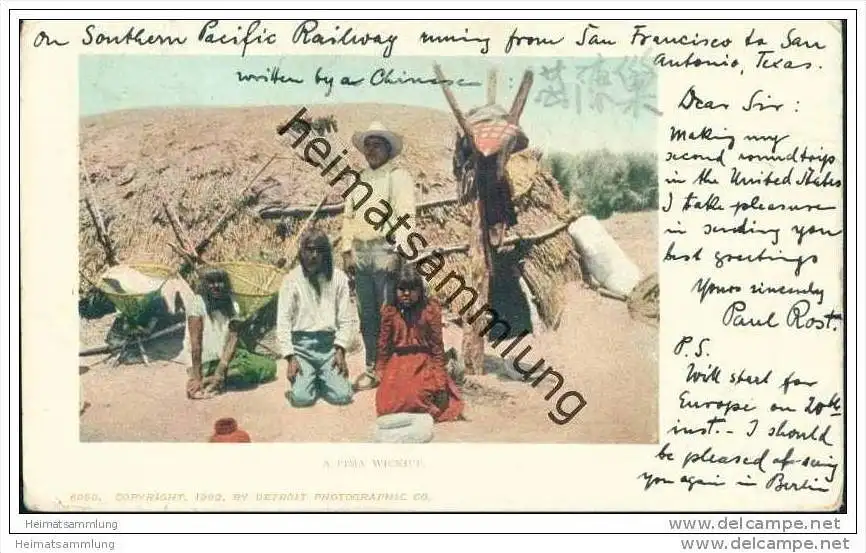 on Southern Pacific Railway runing from San Francisco to San
Antonio, Texas.
written by a Chinese :
Dear Sir:
Making my
second roundtrips
in the United States
I take pleasure
in sending you
best greetings
Yours sincerely
Paul Rost.
P.S.
Will start for
Europe on 20th
inst. - I should
be pleased of seeing
you again in Berlin
heimatsammlung.de
A PIMA WICKIUT.
6050. COPYRIGHT, 1902, BY DETROIT PHOTOGRAPHIC CO.
www.heimatsammlung.de
Heimatsammlung
www.ansichtskarten-center.de
Heimatsammlung
www.heimatsammlung.de